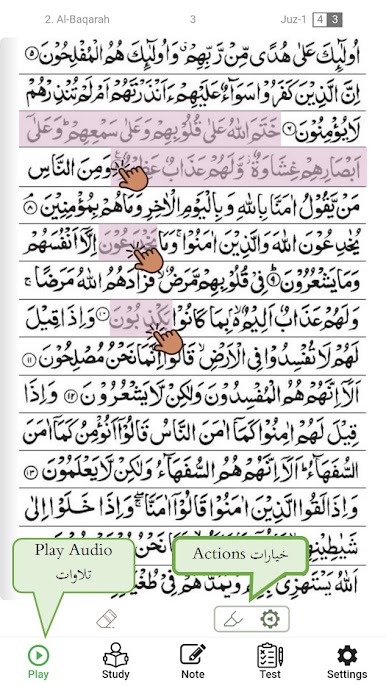 2. Al-Baqarah 3 Juz-1 4 3
اُولٰٓئِكَ عَلٰى هُدًى مِّنْ رَّبِّهِمْ وَاُولٰٓئِكَ هُمُ الْمُفْلِحُوْنَ ۵
اِنَّ الَّذِيْنَ كَفَرُوْا سَوَآءٌ عَلَيْهِمْ ءَاَنْذَرْتَهُمْ اَمْ لَمْ تُنْذِرْهُمْ
لَا يُؤْمِنُوْنَ ۶ خَتَمَ اللّٰهُ عَلٰى قُلُوْبِهِمْ وَعَلٰى سَمْعِهِمْ ؕ وَعَلٰٓى
اَبْصَارِهِمْ غِشَاوَةٌ وَّلَهُمْ عَذَابٌ وَمِنَ النَّاسِ
مَنْ يَّقُوْلُ اٰمَنَّا بِاللّٰهِ وَبِالْيَوْمِ الْاٰخِرِ وَمَا هُمْ بِمُؤْمِنِيْنَ ۸
يُخٰدِعُوْنَ اللّٰهَ وَالَّذِيْنَ اٰمَنُوْا وَمَا يَخْدَعُوْنَ اِلَّآ اَنْفُسَهُمْ
وَمَا يَشْعُرُوْنَ ۹ فِيْ قُلُوْبِهِمْ مَّرَضٌ فَزَادَهُمُ اللّٰهُ مَرَضًا ۚ
وَلَهُمْ عَذَابٌ اَلِيْمٌ بِمَا كَانُوْا يَكْذِبُوْنَ ۱۰ وَاِذَا قِيْلَ
لَهُمْ لَا تُفْسِدُوْا فِى الْاَرْضِ قَالُوْٓا اِنَّمَا نَحْنُ مُصْلِحُوْنَ ۱۱
اَلَآ اِنَّهُمْ هُمُ الْمُفْسِدُوْنَ وَلٰكِنْ لَّا يَشْعُرُوْنَ ۱۲ وَاِذَا
قِيْلَ لَهُمْ اٰمِنُوْا كَمَآ اٰمَنَ النَّاسُ قَالُوْٓا اَنُؤْمِنُ كَمَآ اٰمَنَ
السُّفَهَآءُ ؕ اَلَآ اِنَّهُمْ هُمُ السُّفَهَآءُ وَلٰكِنْ لَّا يَعْلَمُوْنَ ۱۳
وَاِذَا لَقُوا الَّذِيْنَ اٰمَنُوْا قَالُوْٓا اٰمَنَّا ۖ وَاِذَا خَلَوْا اِلٰى
نَحْنُ
اَللّٰهُ يَسْتَهْزِئُ بِهِمْ وَيَمُدُّهُمْ فِيْ
Play Audio
تلاوات
Actions خيارات
Play Study Note Test Settings